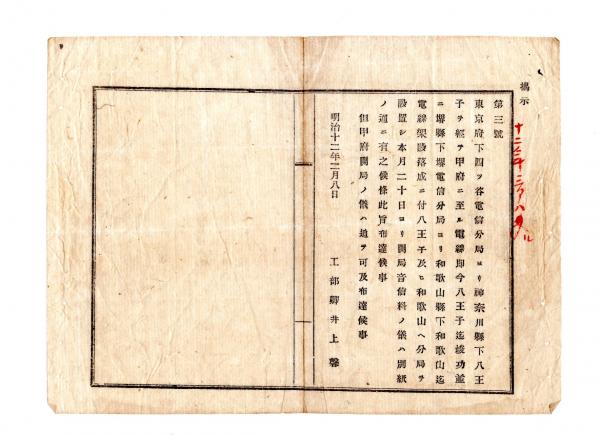 掲示
第三號
東京府下四ツ谷電信分局ヨリ神奈川縣下八王
子ヲ經テ甲府ニ至ル電線即今八王子迄竣功並
ニ堺縣下堺電信分局ヨリ和歌山縣下和歌山迄
電線架設落成ニ付八王子及ヒ和歌山ヘ分局ヲ
設置シ本月二十日ヨリ開局音信料ノ儀ハ別紙
ノ通ニ有之候條此旨布達候事
但甲府開局ノ儀ハ追テ可及布達候事
明治十二年三月八日
工部卿井上馨